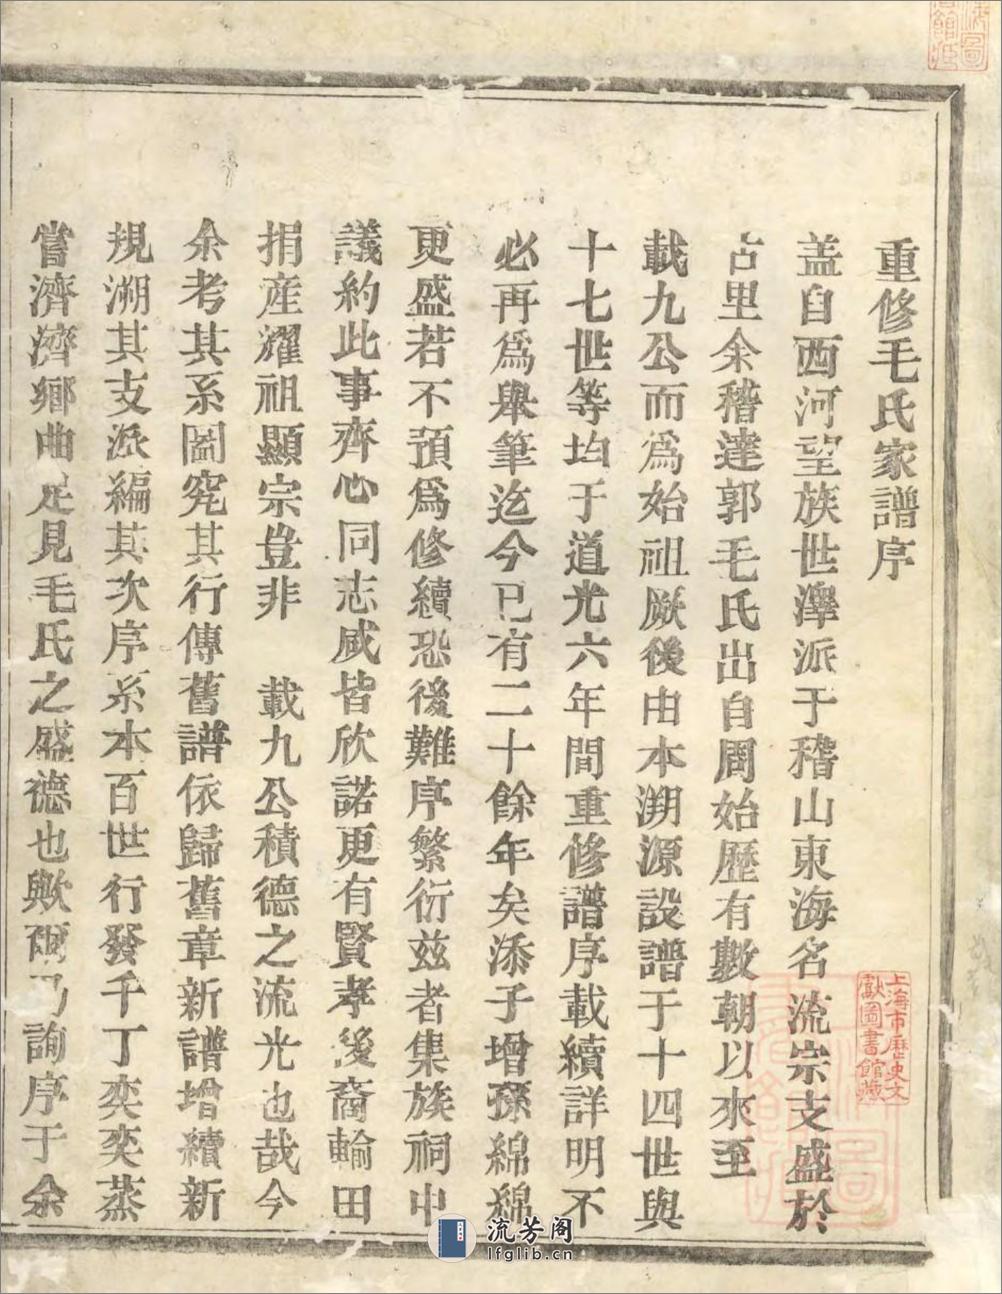 重修毛氏家譜序
盖自西河望族世澤派于稽山東海名流宗支盛於
占里余稽達郭毛氏出自周始歷有數朝以來至
載九公而爲始祖厥後由本溯源設譜于十四世與
十七世等均于道光六年間重修譜序載續詳明不
必再爲舉筆迄今已有二十餘年矣添子增孫綿綿
更盛若不預爲修續恐後難序繁衍兹者集族祠中
議約此事齊心同志咸皆欣諾更有賢孝後裔輸田
捐産耀祖顯宗豈非 載九公積德之流光也哉今
余考其系圖究其行傳舊譜依歸舊章新譜增續新
規溯其支派編其次序系本百世行發千丁奕奕蒸
嘗濟濟鄉曲足見毛氏之盛德也歟爾乃詢序于余
上海市歷史文
獻圖書館藏
流芳阁
lfglib.cn